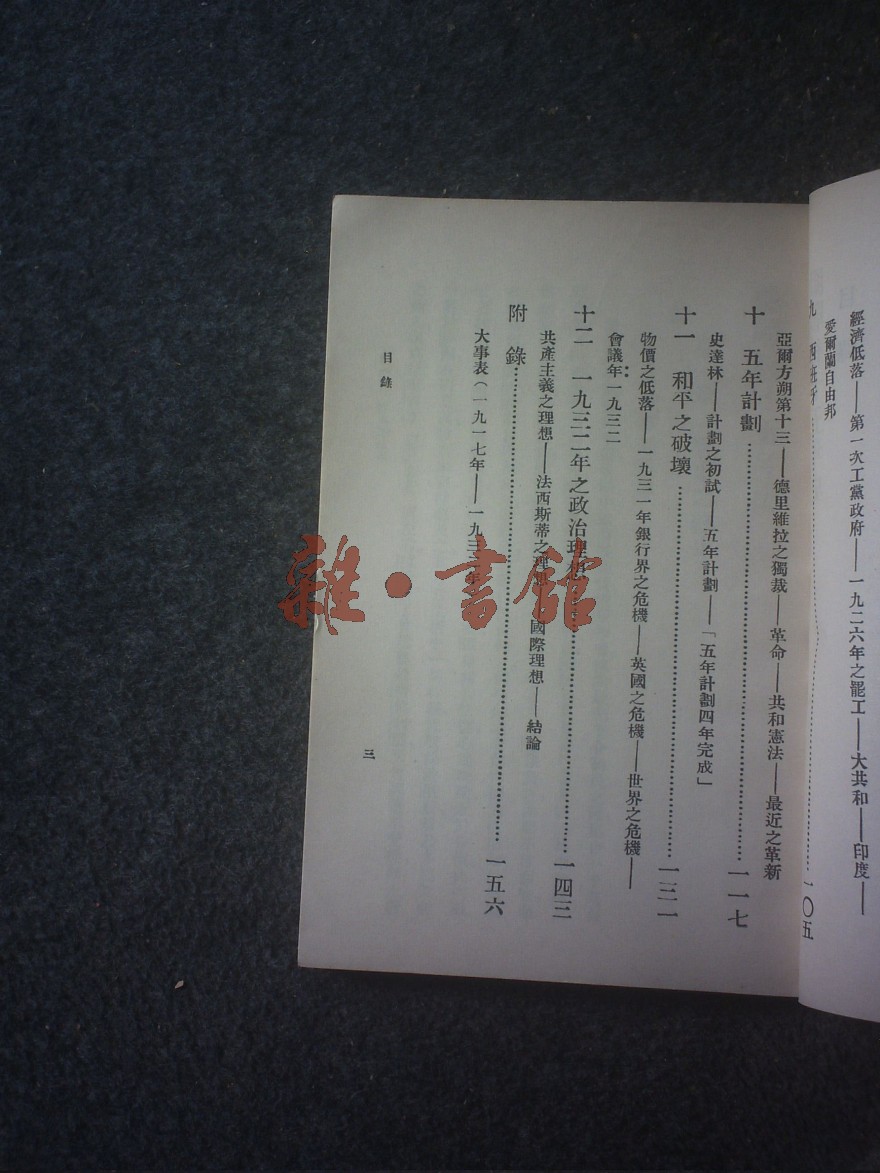 經濟低落——第一次工黨政府——一九二六年之罷工——大共和——印度——
愛爾蘭自由邦
九 西班牙……一〇五
亞爾方朔第十三——德里維拉之獨裁——革命——共和憲法——最近之革新
十 五年計劃……一一七
史達林——計劃之初試——五年計劃——「五年計劃四年完成」
十一 和平之破壞……一三一
物價之低落——一九三一年銀行界之危機——英國之危機——世界之危機——
會議年一九三二
十二 一九三二年之政治理想……一四三
共產主義之理想——法西斯蒂之理想——國際理想——結論
附錄……一五六
大事表(一九一七年——一九三三年
目錄
三
雜·書館